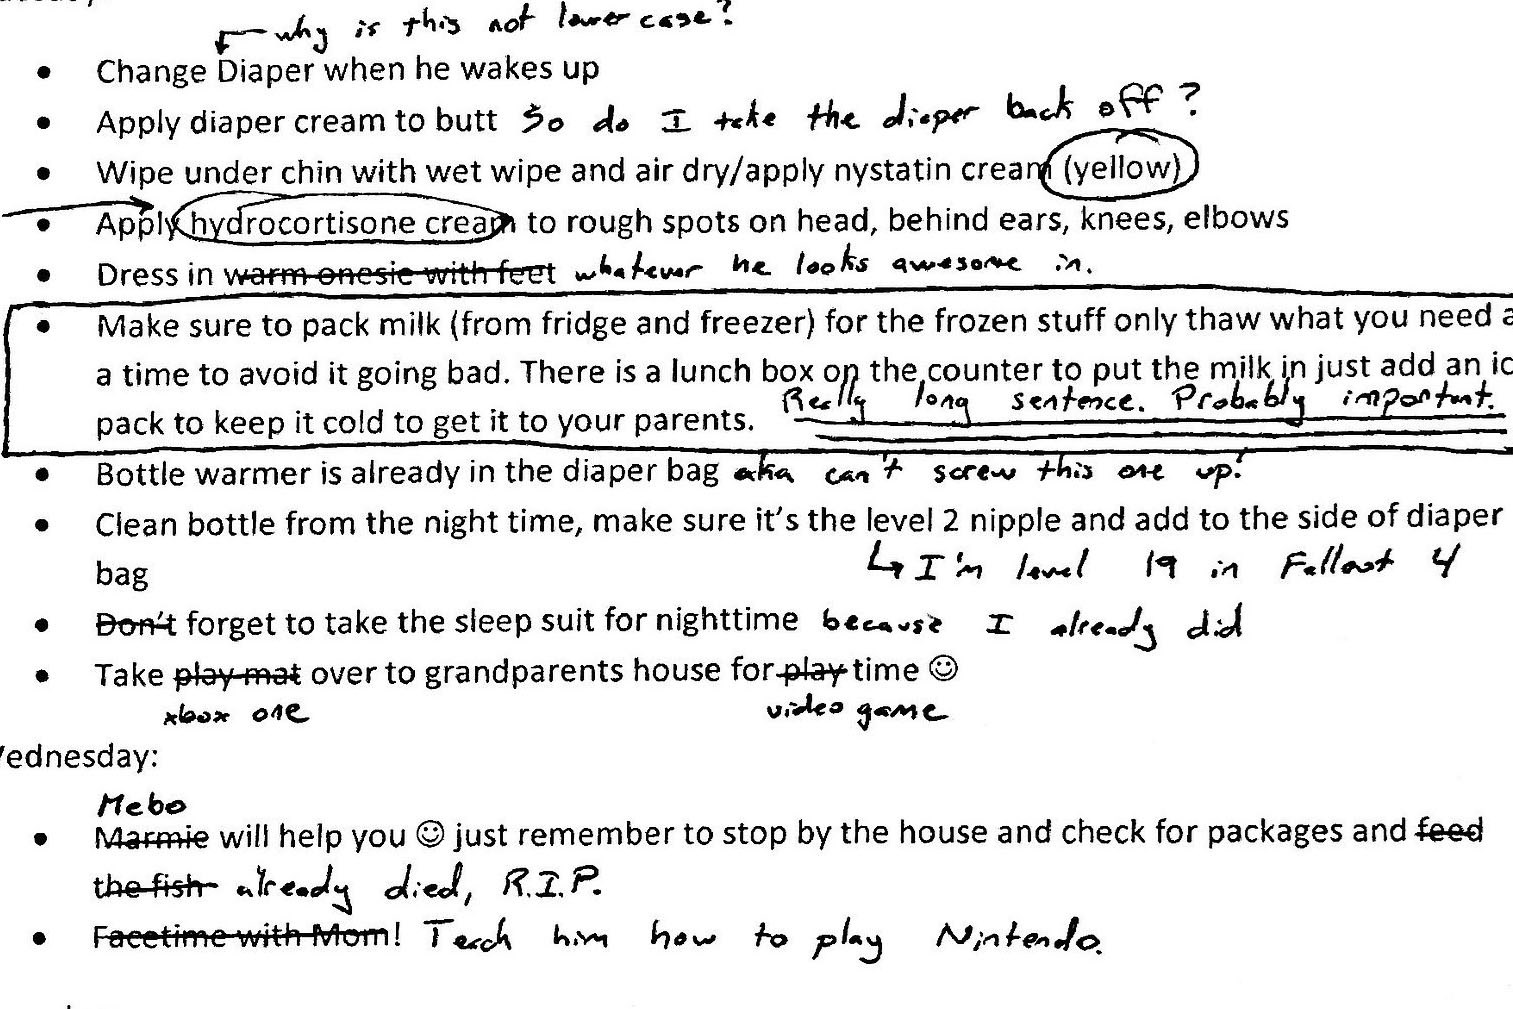 why is this not lower case?
• Change Diaper when he wakes up
• Apply diaper cream to butt So do I take the diaper back off?
• Wipe under chin with wet wipe and air dry/apply nystatin cream (yellow)
• Apply hydrocortisone cream to rough spots on head, behind ears, knees, elbows
• Dress in warm onesie with feet whatever he looks awesome in.
• Make sure to pack milk (from fridge and freezer) for the frozen stuff only thaw what you need
a time to avoid it going bad. There is a lunch box on the counter to put the milk in just add an
pack to keep it cold to get it to your parents. Really long sentence. Probably important.
• Bottle warmer is already in the diaper bag aka can't screw this one up!
• Clean bottle from the night time, make sure it's the level 2 nipple and add to the side of diaper
bag I'm level 19 in Fallout 4
• Don't forget to take the sleep suit for nighttime because I already did
• Take play mat over to grandparents house for play time ☺
xbox one video game
ednesday:
Mebo
• Marmie will help you ☺ just remember to stop by the house and check for packages and feed
the fish already died, R.I.P.
• Facetime with Mom! Teach him how to play Nintendo.